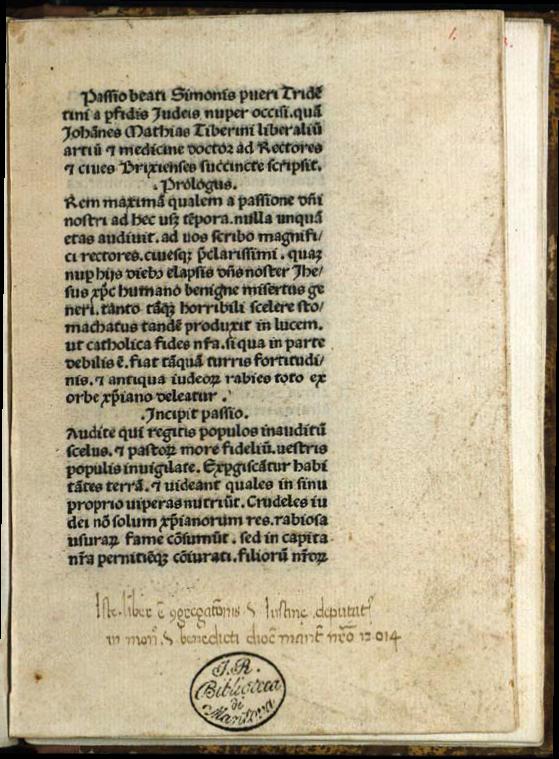 Passio beati Simonis pueri Tridē
tini a ꝑfidis Judeis nuper occisi.quā
Johānes Mathias Tiberini liberaliū
artiū ⁊ medicine doctor ad Rectores
⁊ ciues Brixienses succincte scripsit.
.Prologus.
Rem maximā qualem a passione dn̄i
nostri ad hec usqꝫ tēpora.nulla unquā
etas audiuit.ad uos scribo magnifi/
ci rectores.ciuesqꝫ p̄clarissimi.quaꝫ
nuꝑ hijs dieb⁹ elapsis dn̄s noster Jhe/
sus xp̄c humano benigne misertus ge
neri.tanto tāqꝫ horribili scelere sto/
machatus tandē produxit in lucem.
ut catholica fides nr̄a.si qua in parte
debilis ē.fiat tāquā turris fortitudi/
nis.⁊ antiqua iudeoꝝ rabies toto ex
orbe xp̄iano deleatur.
.Incipit passio.
Audite qui regitis populos inauditū
scelus.⁊ pastoꝝ more fideliū.uestris
populis inuigilate.Expgiscātur habi
tātes terrā.⁊ uideant quales in sinu
proprio uiperas nutriūt.Crudeles iu
dei nō solum xp̄ianorum res.rabiosa
usuraꝝ fame cōsumūt.sed in capita
nr̄a pernitiēqꝫ cōiurati.filioꝝ nr̄oꝝ
Iste liber ē ꝯgregatōnis S Iustine deputat⁹
in mon̄ S benedicti dioc̄ mant̄ nr̄o 12014
I.R.
Biblioteca
di
Mantova
1.